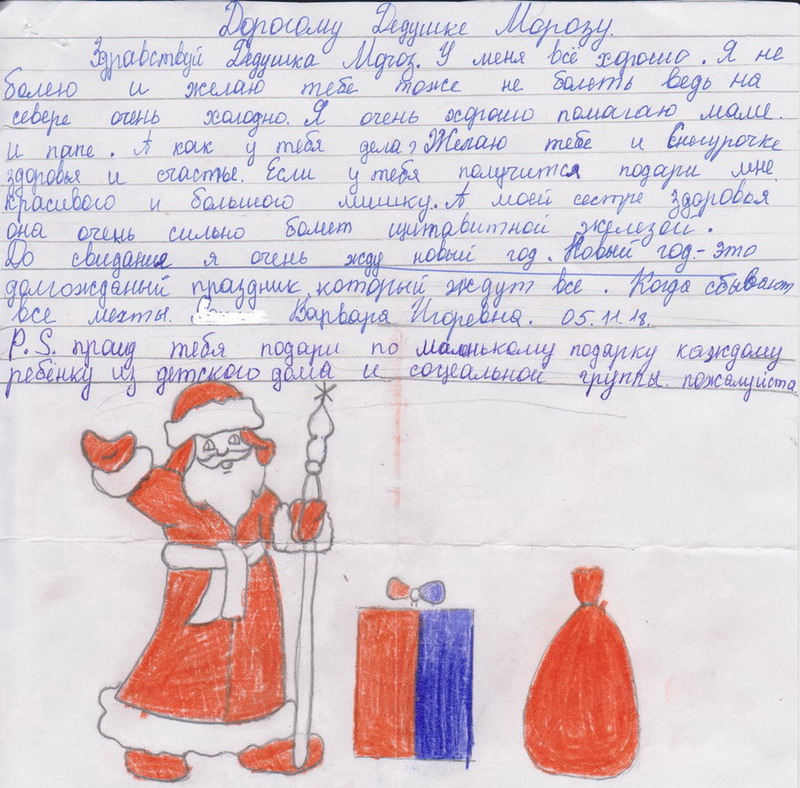 Дорогому Дедушке Морозу.
Здравствуй Дедушка Мороз. У меня всё хорошо. Я не
болею и желаю тебе тоже не болеть ведь на
севере очень холодно. Я очень хорошо помагаю маме
и папе. А как у тебя дела? Желаю тебе и Снегурочке
здоровья и счастье. Если у тебя получится подари мне
красивого и большого мишку. А моей сестре здоровья
она очень сильно болеет щитавитной железой.
До свидание я очень жду новый год. Новый год-это
долгожданый праздник который ждут все. Когда сбывают
все мехты. Варвара Игоревна. 05.11.18.
P.S. прашу тебя подари по маленькому подарку каждому
ребёнку из детского дома и социальной группы. пожалуйста.